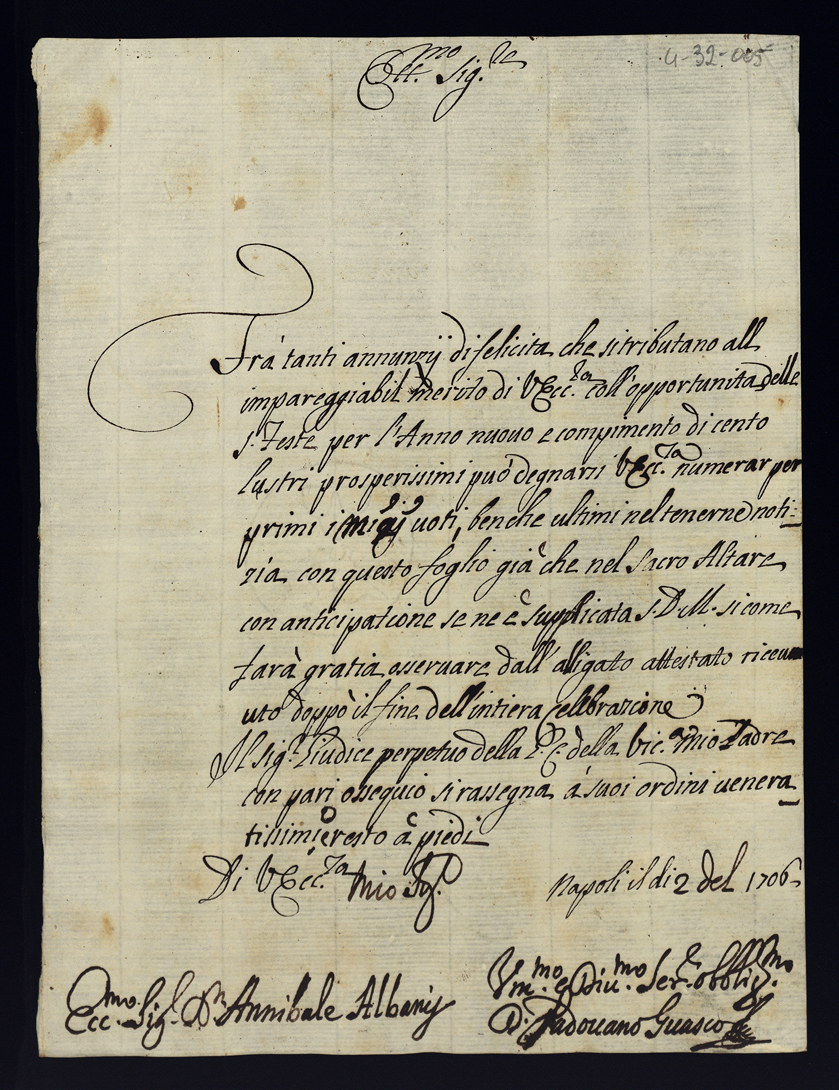 4-32-005
Ecc.mo Sig.re
Frà tanti annunzij di felicita che si tributano all
impareggiabil merito di V.Ecc.za coll'opportunita delle
S. Feste per l'Anno nuovo e compimento di cento
lustri prosperissimi può degnarsi V.Ecc.za numerar per
primi i miei uoti, benche ultimi nel tenerne noti=
zia con questo foglio già che nel sacro Altare
con anticipatione se ne è supplicata S.D.M. si come
farà gratia osseruare dall'alligato attestato riceu
uto doppò il fine dell'intiera Celebrazione
Il sig.r Giudice perpetuo della G.C. della Vic. mio Padre
con pari ossequio si rassegna à suoi ordini uenera
tissimi, e resto à piedi
Di V.Ecc.za Mio Sig.
Napoli il di 2 del 1706
Ecc.mo Sig.r D.n Annibale Albanij
Vm.mo e Diu.mo Ser.re obblig.mo
D. Padouano Guasco